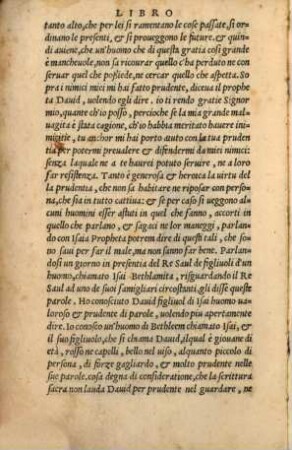 LIBRO
tanto alto, che per lei si ramentano le cose passate, si or-
dinano le presenti, & si proueggono le future. & quin-
di auiene, che un'huomo che di questa gratia cosi grande
è mancheuole, non sa ricourar quello c'ha perduto ne con
seruar quel che possiede, ne cercar quello che aspetta. So
pra i nimici miei mi hai fatto prudente, dice il prophe
ta Dauid, uolendo egli dire, io ti rendo gratie Signor
mio, quante ch'io posso, percioche se la mia grande mal-
uagità è stata cagione, ch'io habbia meritato hauere ini-
micitie, tu anchor mi hai porto aiuto con la tua pruden
tia per potermi preualere & difendermi da miei nimici:
senza laquale ne a te haurei potuto seruire, ne a loro
far resistenza. Tanto è generosa & heroica la uirtu del
la prudentia, che non sa habitare ne riposar con perso-
na, che sia in tutto cattiua: & se per caso si ueggono al-
cuni huomini esser astuti in quel che fanno, accorti in
quello che parlano, & sagaci ne lor maneggi, parlan-
do con Isaia Propheta potrem dire di questi tali, che so-
no saui per far il male, ma non sanno far bene. Parlan-
dosi un giorno in presentia del Re Saul de figliuoli d'un
huomo, chiamato Isai Bethlamita, risguardando il Re
Saul ad uno de suoi famigliari circostanti, gli disse queste
parole. Ho conosciuto Dauid figliuol di Isai huomo ua-
loroso & prudente di parole, uolendo piu apertamente
dire. Io conosco un'huomo di Bethleem chiamato Isai, &
il suo figliuolo, che si chiama Dauid, ilqual è giouane di
età, rosso ne capelli, bello nel uiso, alquanto piccolo di
persona, di forze gagliardo, & molto prudente nelle
sue parole. cosa degna di consideratione, che la scrittura
sacra non lauda Dauid per prudente nel guardare, ne